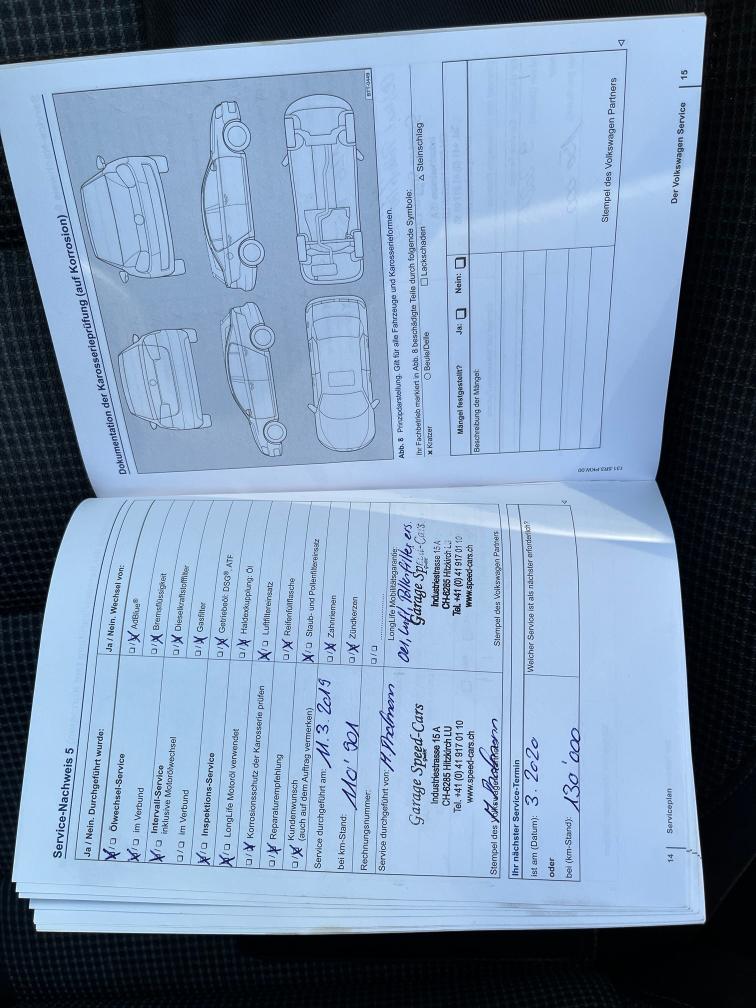 Service-Nachweis 5
Ja / Nein. Durchgeführt wurde:
Ölwechsel-Service
im Verbund
Intervall-Service
inklusive Motorölwechsel
im Verbund
Inspektions-Service
LongLife Motoröl verwendet
Korrosionsschutz der Karosserie prüfen
Reparaturempfehlung
Kundenwunsch
(auch auf dem Auftrag vermerken)
Service durchgeführt am: 11.3.2019
bei km-Stand: 110'901
Rechnungsnummer:
Service durchgeführt von:
Garage Speed-Cars
Industriestrasse 15 A
CH-6285 Hitzkirch LU
Tel. +41 (0) 41 917 01 10
www.speed-cars.ch
Stempel des Volkswagen Partners
Ja / Nein. Wechsel von:
AdBlue®
Bremsflüssigkeit
Dieselkraftstofffilter
Gasfilter
Getriebeöl: DSG®, ATF
Haldexkupplung: Öl
Luftfiltereinsatz
Reifenfüllflasche
Staub- und Pollenfiltereinsatz
Zahnriemen
Zündkerzen
LongLife Mobilitätsgarantie:
Oel, Luft, Pollenfilter ers.
Garage Speed-Cars
Industriestrasse 15 A
CH-6285 Hitzkirch LU
Tel. +41 (0) 41 917 01 10
www.speed-cars.ch
Stempel des Volkswagen Partners
Ihr nächster Service-Termin
ist am (Datum): 3.2020
oder
bei (km-Stand): 130'000
Welcher Service ist als nächster erforderlich?
14 Serviceplan
Dokumentation der Karosserieprüfung (auf Korrosion)
BTT-0449
Abb. 8 Prinzipdarstellung. Gilt für alle Fahrzeuge und Karosserieformen.
Ihr Fachbetrieb markiert in Abb. 8 beschädigte Teile durch folgende Symbole:
× Kratzer ○ Beule/Delle □ Lackschaden △ Steinschlag
Mängel festgestellt? Ja: Nein:
Beschreibung der Mängel:
Stempel des Volkswagen Partners
131.5R3.PKW.00
Der Volkswagen Service 15